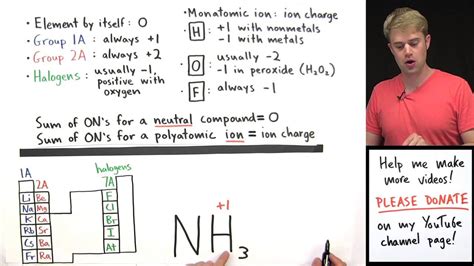 • Element by itself: 0
• Group 1A: always +1
• Group 2A: always +2
• Halogens: usually -1,
positive with
oxygen
• Monatomic ion: ion charge
• H : +1 with nonmetals
-1 with metals
• O : usually -2
-1 in peroxide (H₂O₂)
• F : always -1
Sum of ON's for a neutral compound = 0
Sum of ON's for a polyatomic ion = ion charge
1A
2A
halogens
7A
Li Be
Na Mg
K Ca
Rb Sr
Cs Ba
Fr Ra
F
Cl
Br
I
At
+1
NH₃
Help me make
more videos!
PLEASE DONATE
on my YouTube
channel page!